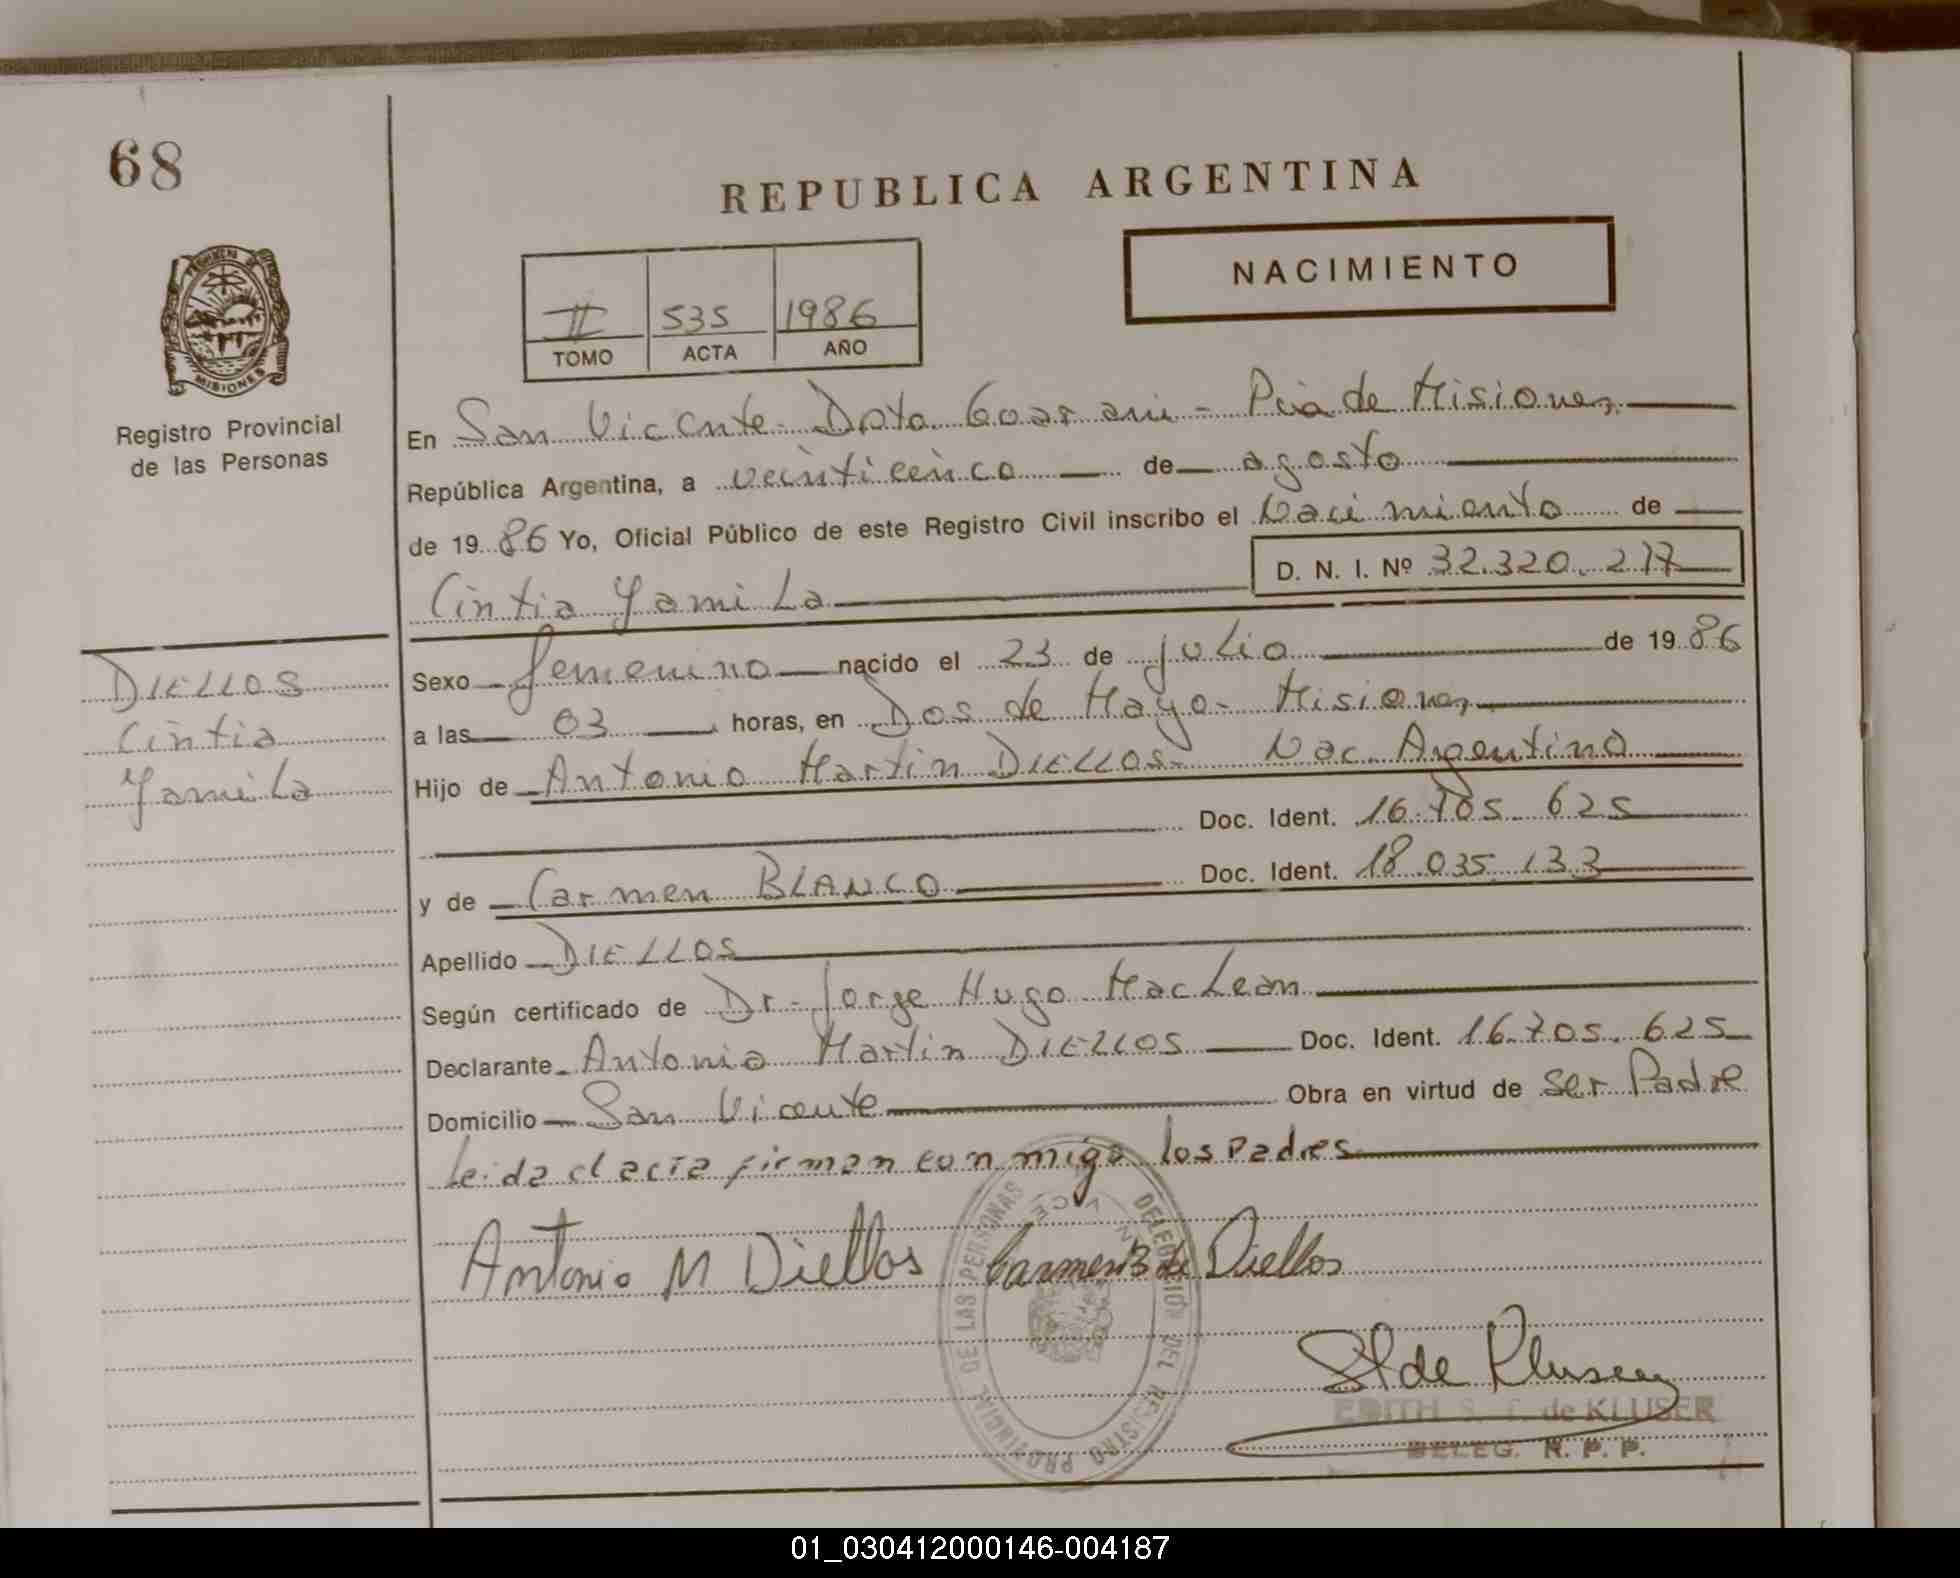 68
REPUBLICA ARGENTINA
NACIMIENTO
II 535 1986
TOMO ACTA AÑO
PROVINCIA DE
MISIONES
Registro Provincial
de las Personas
En San Vicente - Dpto. Guarani - Pcia de Misiones
República Argentina, a veinticinco de agosto
de 1986 Yo, Oficial Público de este Registro Civil inscribo el Nacimiento de
D. N. I. Nº 32.320.217
Cintia Yamila
DIELLOS
Cintia
Yamila
Sexo femenino nacido el 23 de julio de 1986
a las 03 horas, en Dos de Mayo - Misiones
Hijo de Antonio Martin DIELLOS - Nac. Argentino
Doc. Ident. 16.705.625
y de Carmen BLANCO Doc. Ident. 18.035.133
Apellido DIELLOS
Según certificado de Dr. Jorge Hugo MacLean
Declarante Antonio Martin DIELLOS Doc. Ident. 16.705.625
Domicilio San Vicente Obra en virtud de ser Padre
Leida el acta firman conmigo los padres
Antonio M Diellos Carmen B de Diellos
DELEGACIÓN DEL REGISTRO PROVINCIAL DE LAS PERSONAS
de Kluser
EDITH S. T. de KLUSER
DELEG. R. P. P.
01_030412000146-004187